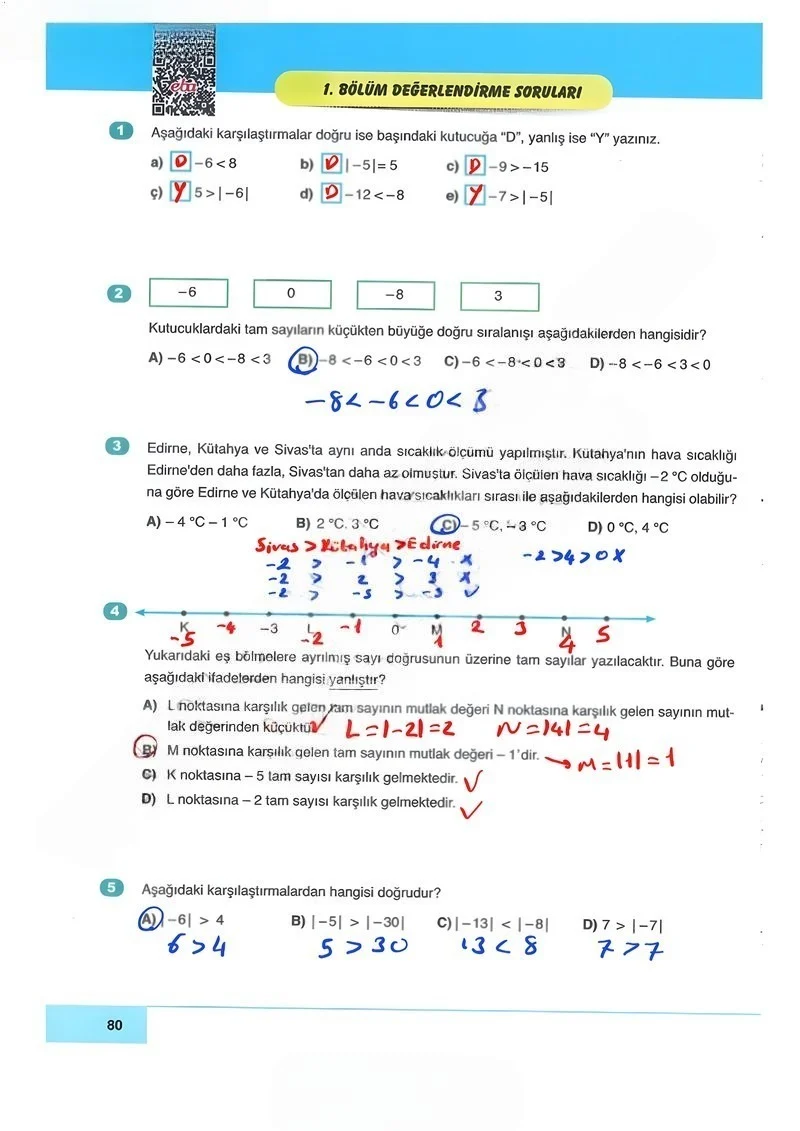 eba
1. BÖLÜM DEĞERLENDİRME SORULARI
1 Aşağıdaki karşılaştırmalar doğru ise başındaki kutucuğa "D", yanlış ise "Y" yazınız.
a) D −6 < 8 b) D |−5| = 5 c) D −9 > −15
ç) Y 5 > |−6| d) D −12 < −8 e) Y −7 > |−5|
2 −6 0 −8 3
Kutucuklardaki tam sayıların küçükten büyüğe doğru sıralanışı aşağıdakilerden hangisidir?
A) −6 < 0 < −8 < 3 B) −8 < −6 < 0 < 3 C) −6 < −8 < 0 < 3 D) −8 < −6 < 3 < 0
−8 < −6 < 0 < 3
3 Edirne, Kütahya ve Sivas'ta aynı anda sıcaklık ölçümü yapılmıştır. Kütahya'nın hava sıcaklığı
Edirne'den daha fazla, Sivas'tan daha az olmuştur. Sivas'ta ölçülen hava sıcaklığı −2 °C olduğu-
na göre Edirne ve Kütahya'da ölçülen hava sıcaklıkları sırası ile aşağıdakilerden hangisi olabilir?
A) − 4 °C − 1 °C B) 2 °C. 3 °C C) − 5 °C, − 3 °C D) 0 °C, 4 °C
Sivas > Kütahya > Edirne
−2 > −1 > −4 x −2 > 4 > 0 x
−2 > 2 > 3 x
−2 > −5 > −3 ✓
4
K −3 L 0 M N
−5 −4 −2 −1 1 2 3 4 5
Yukarıdaki eş bölmelere ayrılmış sayı doğrusunun üzerine tam sayılar yazılacaktır. Buna göre
aşağıdaki ifadelerden hangisi yanlıştır?
A) L noktasına karşılık gelen tam sayının mutlak değeri N noktasına karşılık gelen sayının mut-
lak değerinden küçüktür ✓ L = |−2| = 2 N = |4| = 4
B) M noktasına karşılık gelen tam sayının mutlak değeri − 1'dir. → M = |1| = 1
C) K noktasına − 5 tam sayısı karşılık gelmektedir. ✓
D) L noktasına − 2 tam sayısı karşılık gelmektedir. ✓
5 Aşağıdaki karşılaştırmalardan hangisi doğrudur?
A) |−6| > 4 B) |−5| > |−30| C) |−13| < |−8| D) 7 > |−7|
6 > 4 5 > 30 13 < 8 7 > 7
80